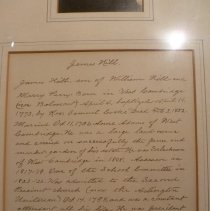 James Hill
James Hill, son of William Hill and
Mary Perry, Born in West Cambridge
(now Belmont) April 6, baptized April 18,
1773, by Rev. Samuel Cooke. Died Feb. 2, 1852.
Married Oct 11, 1796 Anna Adams of West
Cambridge. He was a large land owner
and carried on successfully the farm
of his father. Was Selectman
of West Cambridge in 1808. Assessor in
1817-19. One of the School Committee in
1823-25. Was admitted to the Second
Precinct church (now the Arlington
Unitarian) Oct 14, 1798, and was a constant
all his life. He was President